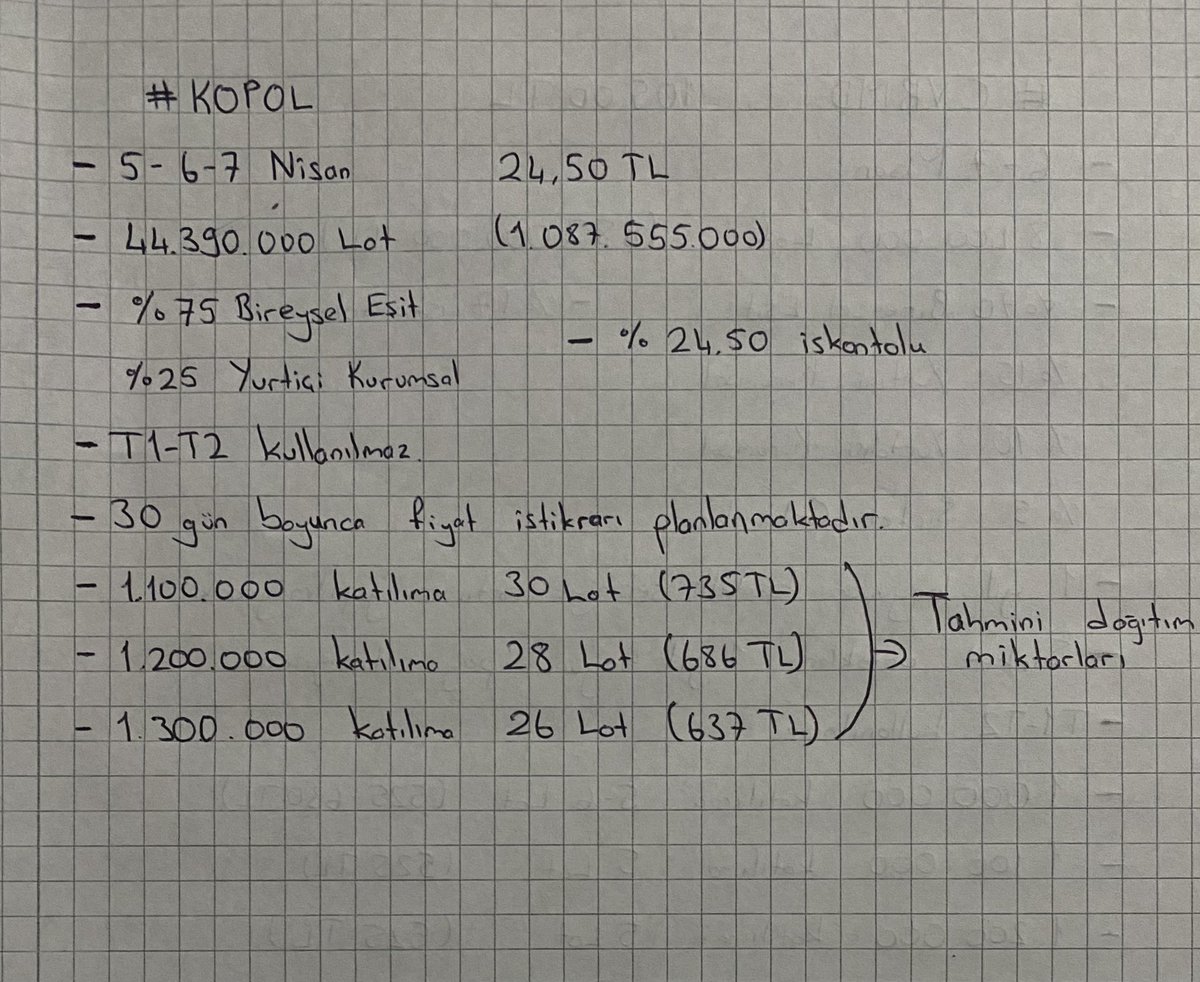 # KOPOL
- 5-6-7 Nisan 24,50 TL
- 44.390.000 Lot (1.087.555.000)
- %75 Bireysel Eşit
- % 24.50 iskontolu
%25 Yurtiçi Kurumsal
- T1-T2 kullanılmaz.
- 30 gün boyunca fiyat istikrarı planlanmaktadır.
- 1.100.000 katılıma 30 Lot (735 TL)
- 1.200.000 katılıma 28 Lot (686 TL)
- 1.300.000 katılıma 26 Lot (637 TL)
→ Tahmini dağıtım
miktarları